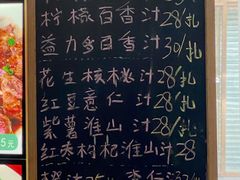 柠檬百香汁28/扎
益力多百香汁30/扎
花生核桃汁28/扎
红豆意仁汁28/扎
紫薯淮山汁28/扎
红枣枸杞淮山汁28
5元